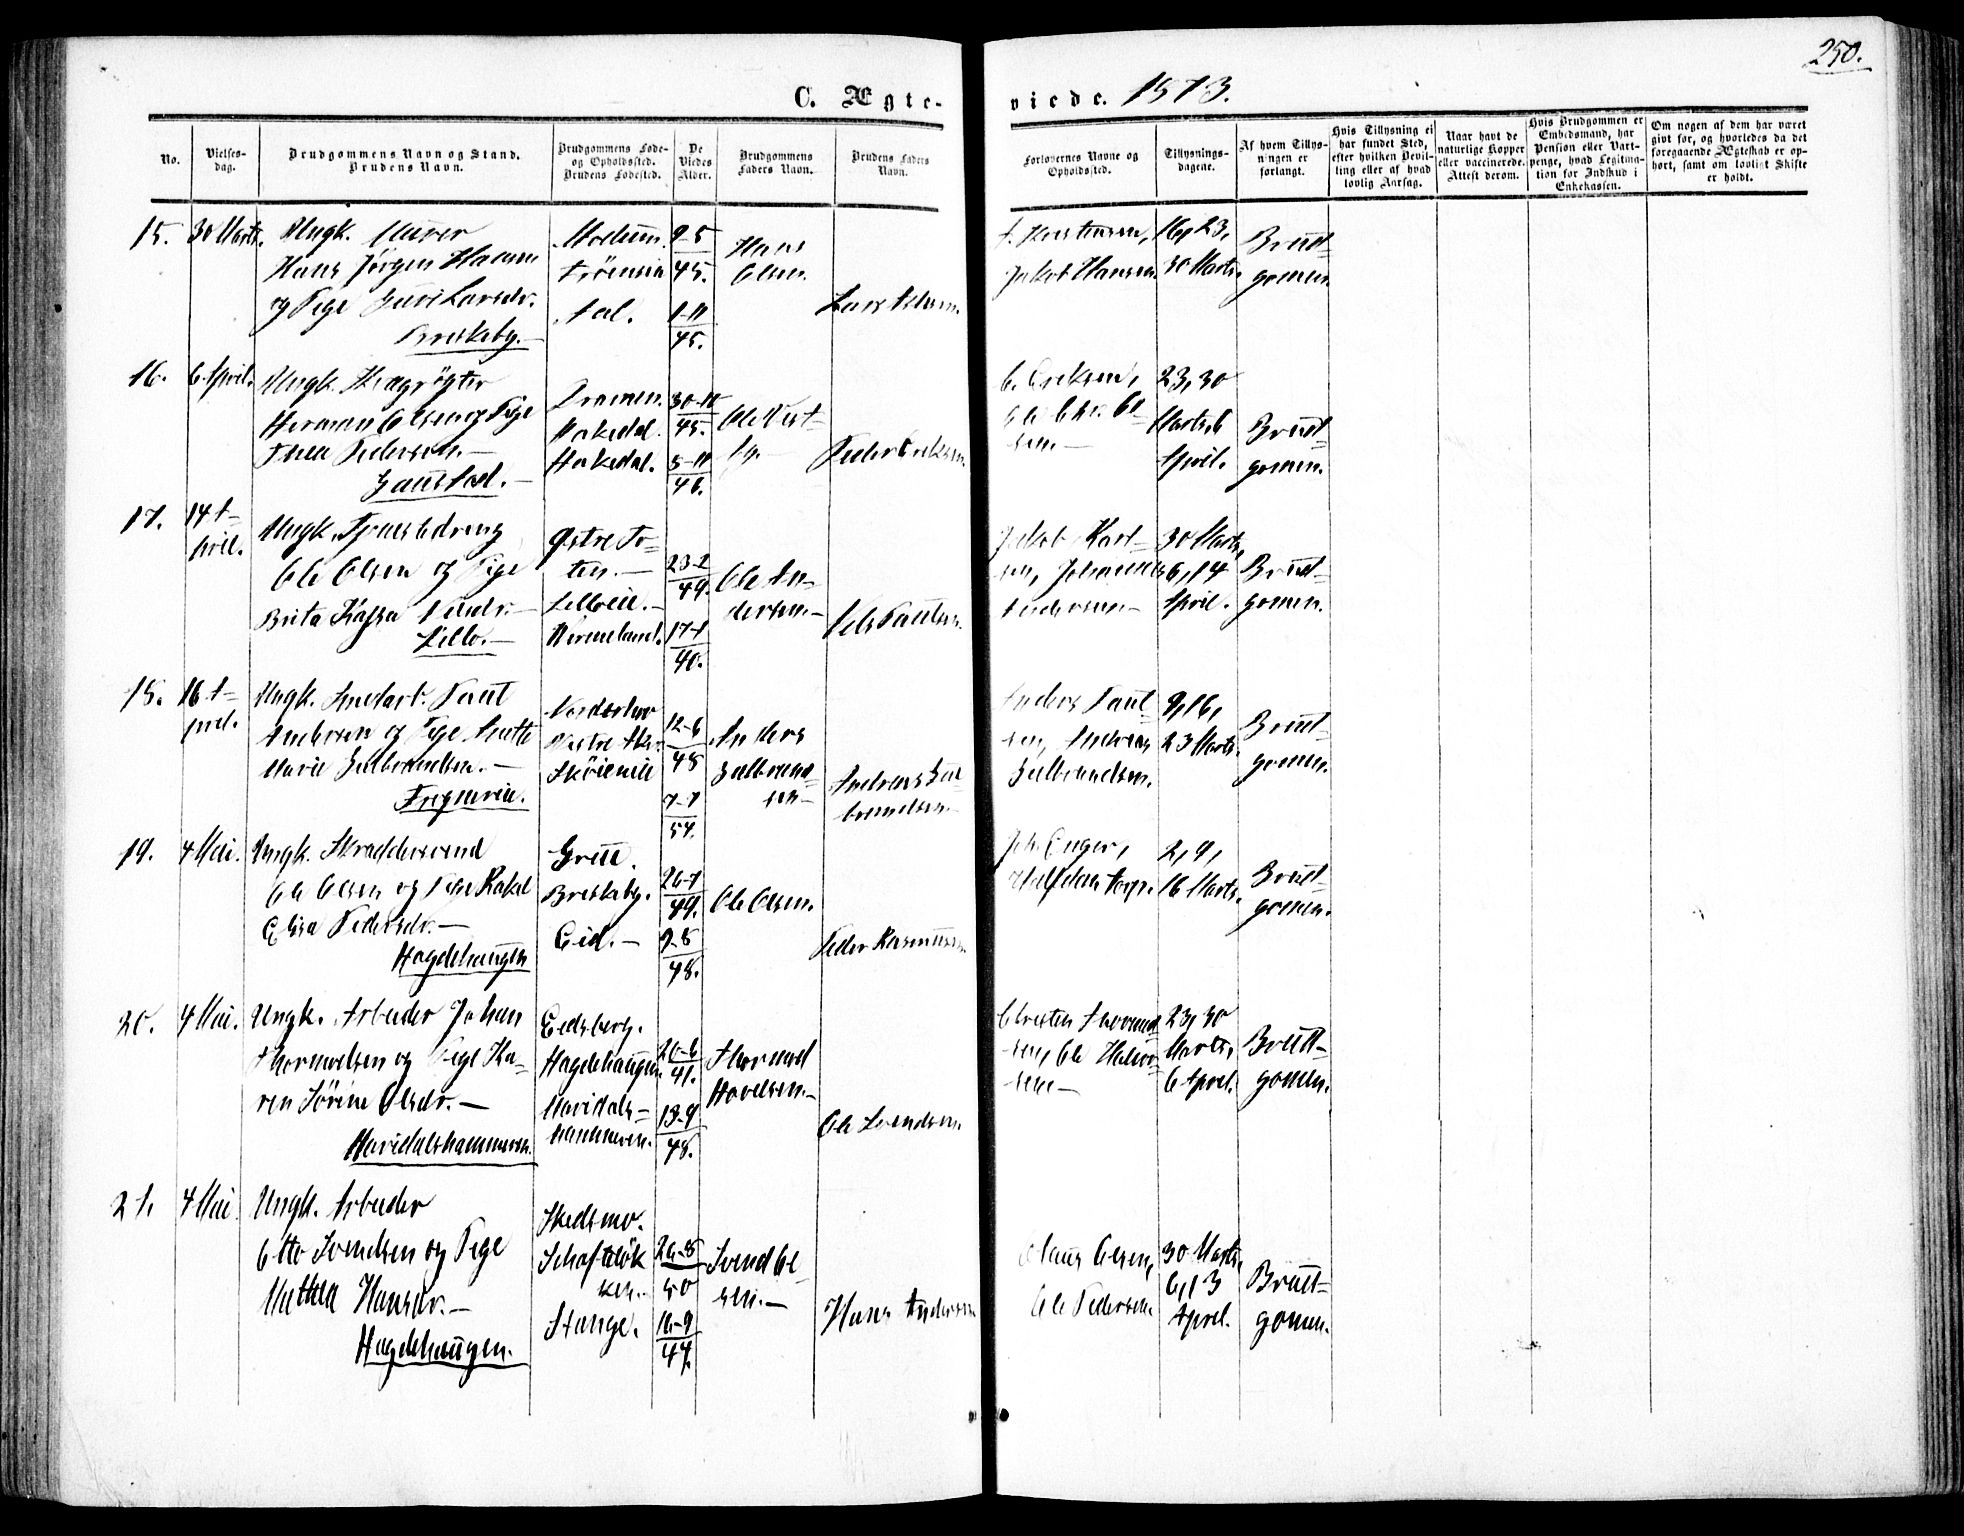 250.
C. Ægte-
viede. 1873.
No.
Vielses-
dag.
Brudgommens Navn og Stand.
Brudens Navn.
Brudgommens Føde-
og Opholdssted.
Brudens Fødested.
De
Viedes
Alder.
Brudgommens
Faders Navn.
Brudens Faders
Navn.
Forlovernes Navne og
Opholdssted.
Tillysnings-
dagene.
Af hvem Tillys-
ningen er
forlangt.
Hvis Tillysning ei
har fundet Sted,
efter hvilken Bevil-
ling eller af hvad
lovlig Aarsag.
Naar havt de
naturlige Kopper
eller vaccinerede.
Attest derom.
Hvis Brudgommen er
Embedsmand, har
Pension eller Vart-
penge, hvad Legitima-
tion for Indskud i
Enkekassen.
Om nogen af dem har været
givt før, og hvorledes da det
foregaaende Ægteskab er op-
hørt, samt om lovligt Skifte
er holdt.
15.
30 Marts.
Ungk. Murer
Hans Jørgen Hansen
og Pige Guri Larsdr.
Briskeby.
Modum.
Aal.
2-5
45.
1-11
45.
Hans
Olsen.
Lars
Jakob Hansen.
16, 23,
30 Marts.
Brud-
gomen.
16.
6 April.
Ungk.
Herman Olsen og Pige
Thea Pedersen.
Gaustad.
Dramen.
Hakedal.
Hakedal.
30-11
45.
5-11
46.
Peder Eriksen.
C. Eriksen,
Ole Chr. Ol-
sen.
23, 30
Marts, 6
April.
Brud-
gomen.
17.
14 A-
pril.
Ungk. Tjenestedreng
Ole Olsen og Pige
Brita Kajsa Nilsdr.
Lillo.
Østre To-
ten.
Lilloeie.
Wermeland.
23-2
49.
17-1
40.
Ole An-
dersen.
Jakob Karl-
sen, Johannes
Andersen
30 Marts,
6, 14
April.
Brud-
gomen.
18.
16 A-
pril.
Ungk. Snedkerb. Paul
Andersen og Pige Anette
Marie Gulbrandsen.
Frognereie.
Nordrehov
Vestre Aker
Skøieneie
12-6
48
7-7
54.
Anders
Gulbrand-
sen
Andreas Gul-
brandsen
Anders Paul-
sen, Andreas
Gulbrandsen.
9, 16,
23 Marts.
Brud-
gomen.
19.
4 Mai.
Ungk. Skraddersvend
Ole Olsen og Pige Rakel
Elisa Pedersdr.
Hagdehaugen
Grue.
Briskeby.
Eid.
26-1
49.
9-8
48.
Ole Olsen.
Peder Rasmussen
Joh. Enger,
Halfdan Torp.
2, 9,
16 Marts.
Brud-
gomen.
20.
4 Mai.
Ungk. Arbeider Johan
Thormodsen og Pige Ka-
ren Sørine Olsdr.
Maridalshammeren
Eidsberg.
Hagdehaugen
Maridals-
hammeren.
26-6
41.
13-9
48.
Thormod
Havelsen.
Ole Svendsen.
Christen Thormod-
sen, Ole Halvor-
sen
23, 30
Marts,
6 April.
Brud-
gomen.
21.
4 Mai
Ungk. Arbeider
Otto Svendsen og Pige
Mathea Hansdr.
Hagdehaugen.
Skedsmo.
Schafteløk
ken.
Stange.
26-8
50
16-9
47.
Svend Ol-
sen.
Hans Andersen
Claus Olsen,
Ole Pedersen.
30 Marts,
6, 13
April.
Brud-
gomen.